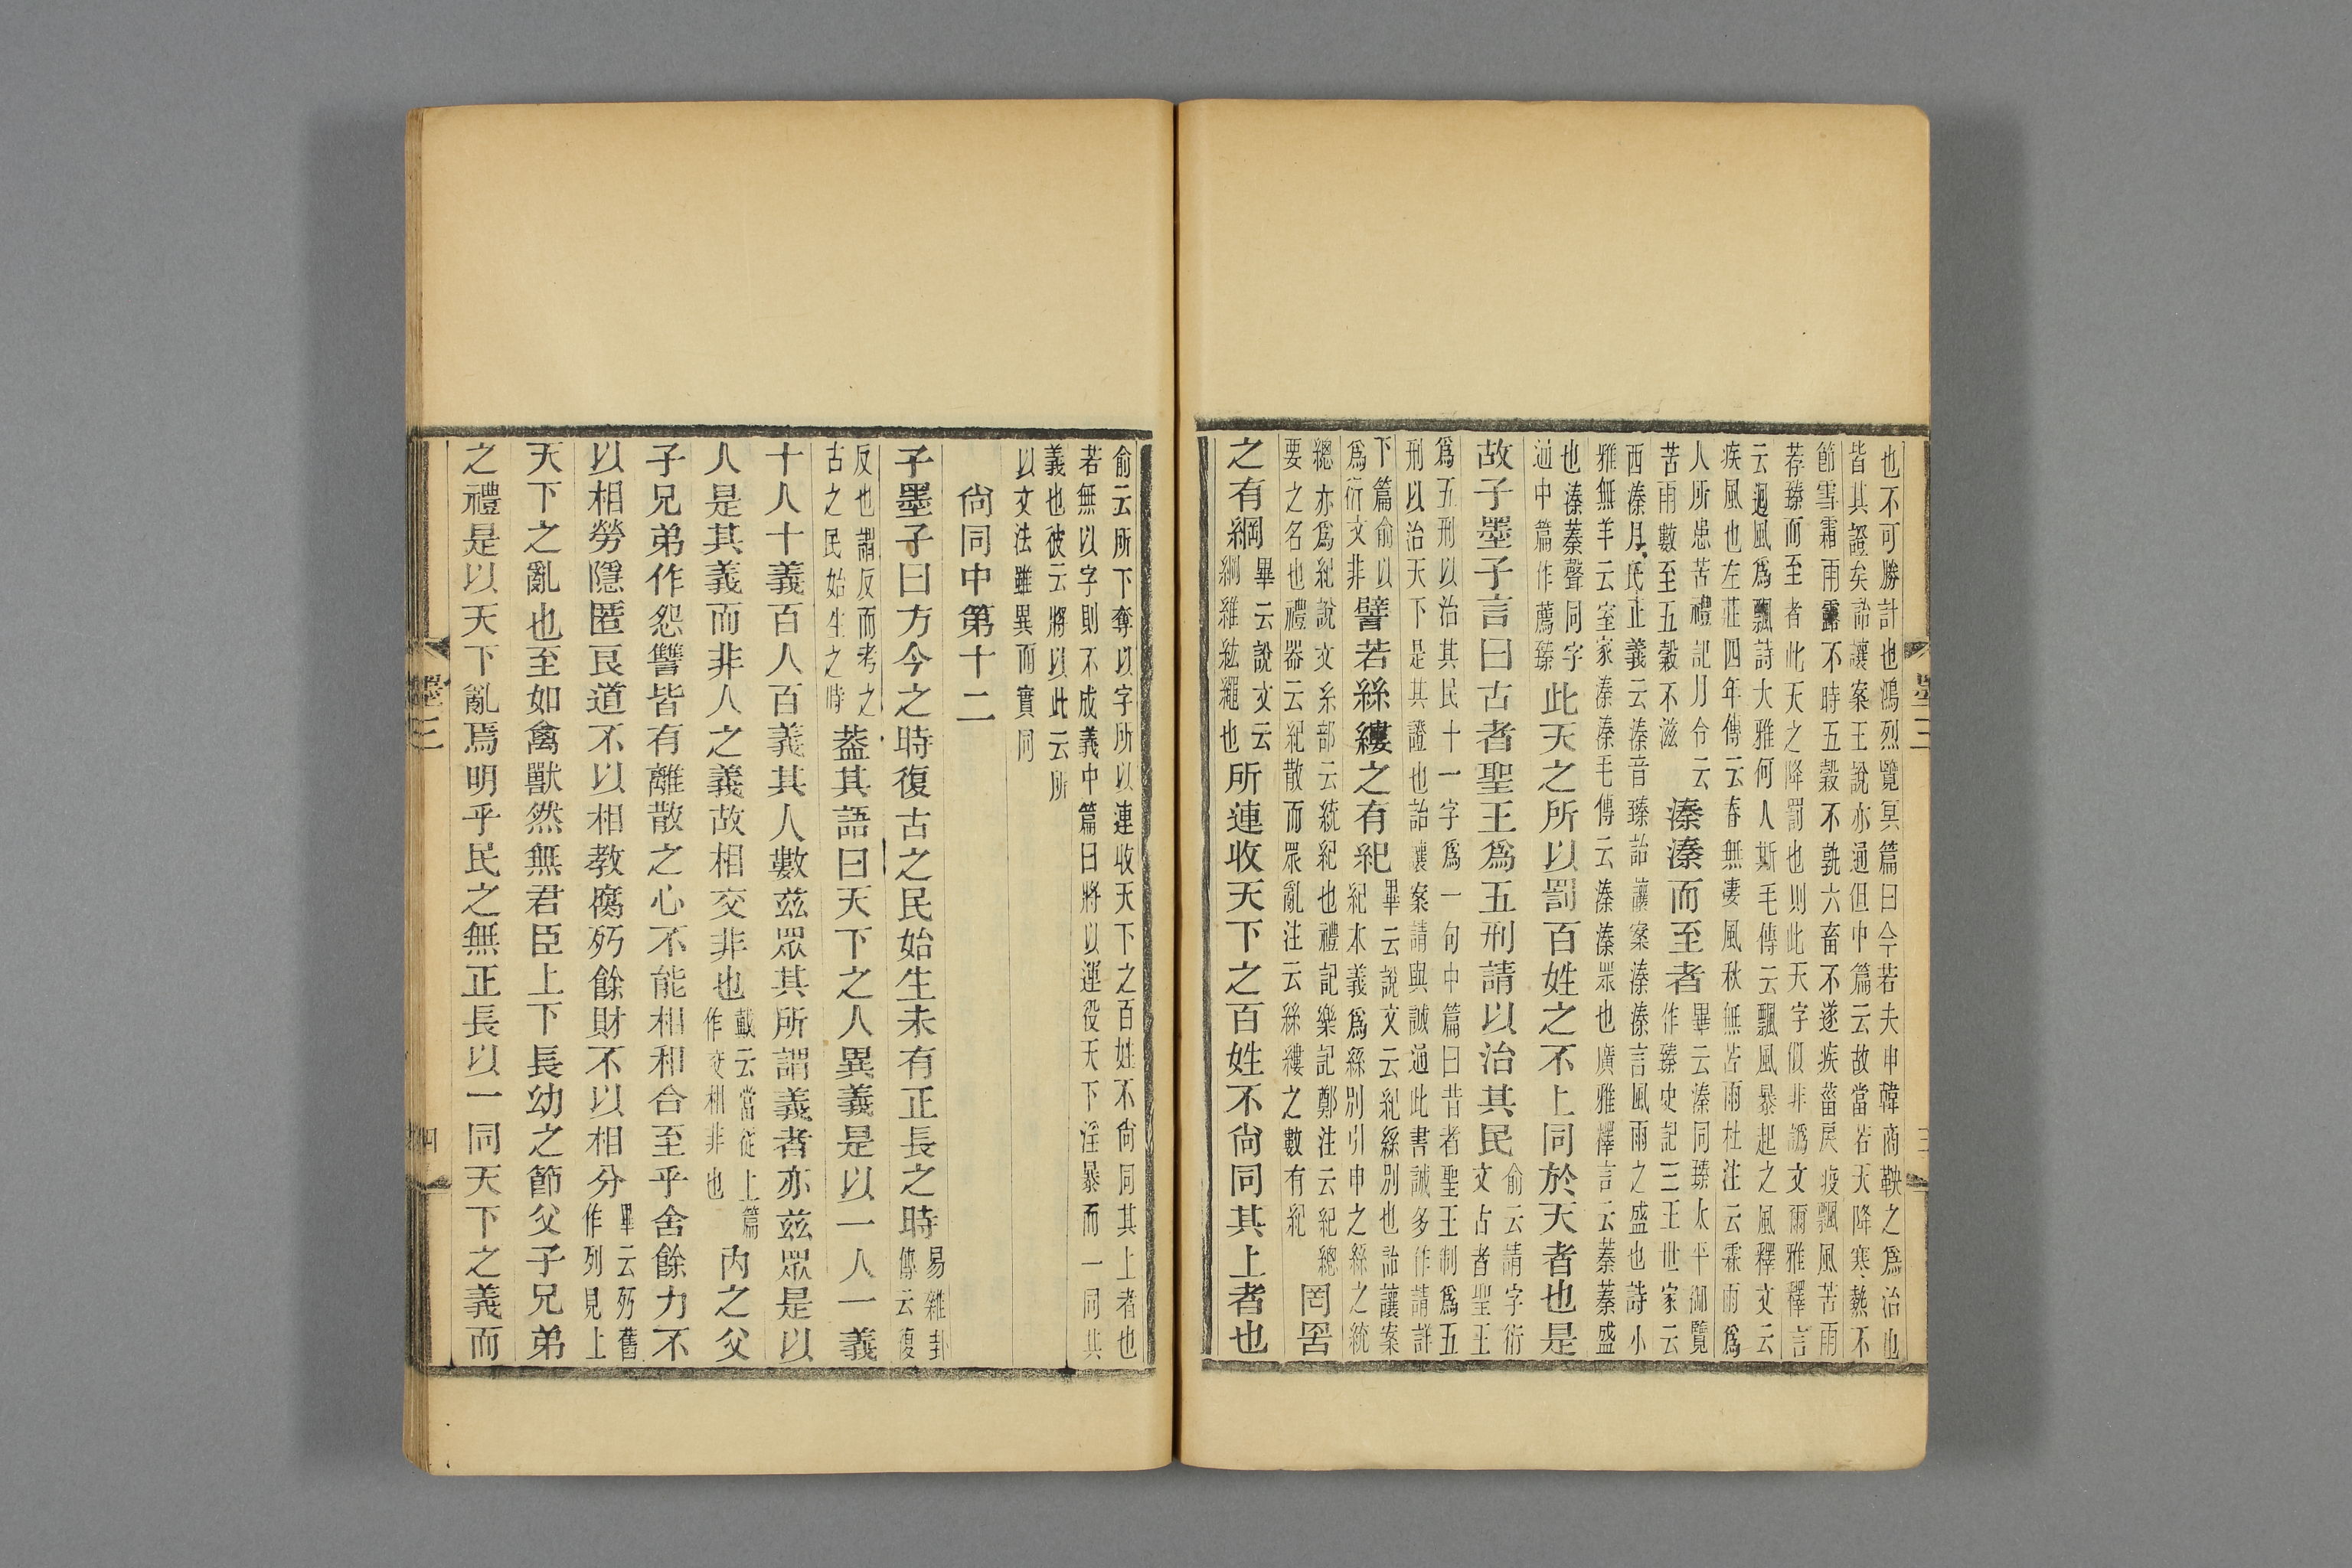 也不可勝計也鴻烈覽冥篇曰今若夫申韓商鞅之爲治也
皆其證矣詒讓案王說亦通但中篇云故當若天降寒熱不
節雪霜雨露不時五穀不孰六畜不遂疾菑戾疫飄風苦雨
荐臻而至者此天之降罰也則此天字似非譌文爾雅釋言
云迴風爲飄詩大雅何人斯毛傳云飄風暴起之風釋文云
疾風也左莊四年傳云春無凄風秋無苦雨杜注云霖雨爲
人所患苦禮記月令云苦雨數至五穀不滋溱溱而至者畢云溱同臻太平御覽作臻史記三王世家云
西溱月氏正義云溱音臻詒讓案溱溱言風雨之盛也詩小
雅無羊云室家溱溱毛傳云溱溱眾也廣雅釋言云蓁蓁盛
也溱蓁聲同字通中篇作薦臻此天之所以罰百姓之不上同於天者也是
故子墨子言曰古者聖王爲五刑請以治其民俞云請字衍文古者聖王
爲五刑以治其民十一字爲一句中篇曰昔者聖王制爲五
刑以治天下是其證也詒讓案請與誠通此書誠多作請詳
下篇俞以爲衍文非譬若絲縷之有紀畢云說文云紀絲別也詒讓案紀本義爲絲別引申之絲之統
總亦爲紀說文糸部云統紀也禮記樂記鄭注云紀總要之名也禮器云紀散而眾亂注云絲縷之數有紀罔罟
之有綱畢云說文云綱維紘繩也所連收天下之百姓不尙同其上者也
墨三
三
俞云所下奪以字所以連收天下之百姓不尙同其上者也
若無以字則不成義中篇曰將以運役天下淫暴而一同其
義也彼云將以此云所
以文法雖異而實同
尙同中第十二
子墨子曰方今之時復古之民始生未有正長之時易雜卦傳云復
反也謂反而考之古之民始生之時葢其語曰天下之人異義是以一人一義
十人十義百人百義其人數茲眾其所謂義者亦茲眾是以
人是其義而非人之義故相交非也戴云當從上篇作交相非也內之父
子兄弟作怨讐皆有離散之心不能相和合至乎舍餘力不
以相勞隱匿良道不以相教腐㱙餘財不以相分畢云㱙舊作列見上
天下之亂也至如禽獸然無君臣上下長幼之節父子兄弟
之禮是以天下亂焉明乎民之無正長以一同天下之義而
墨三
四